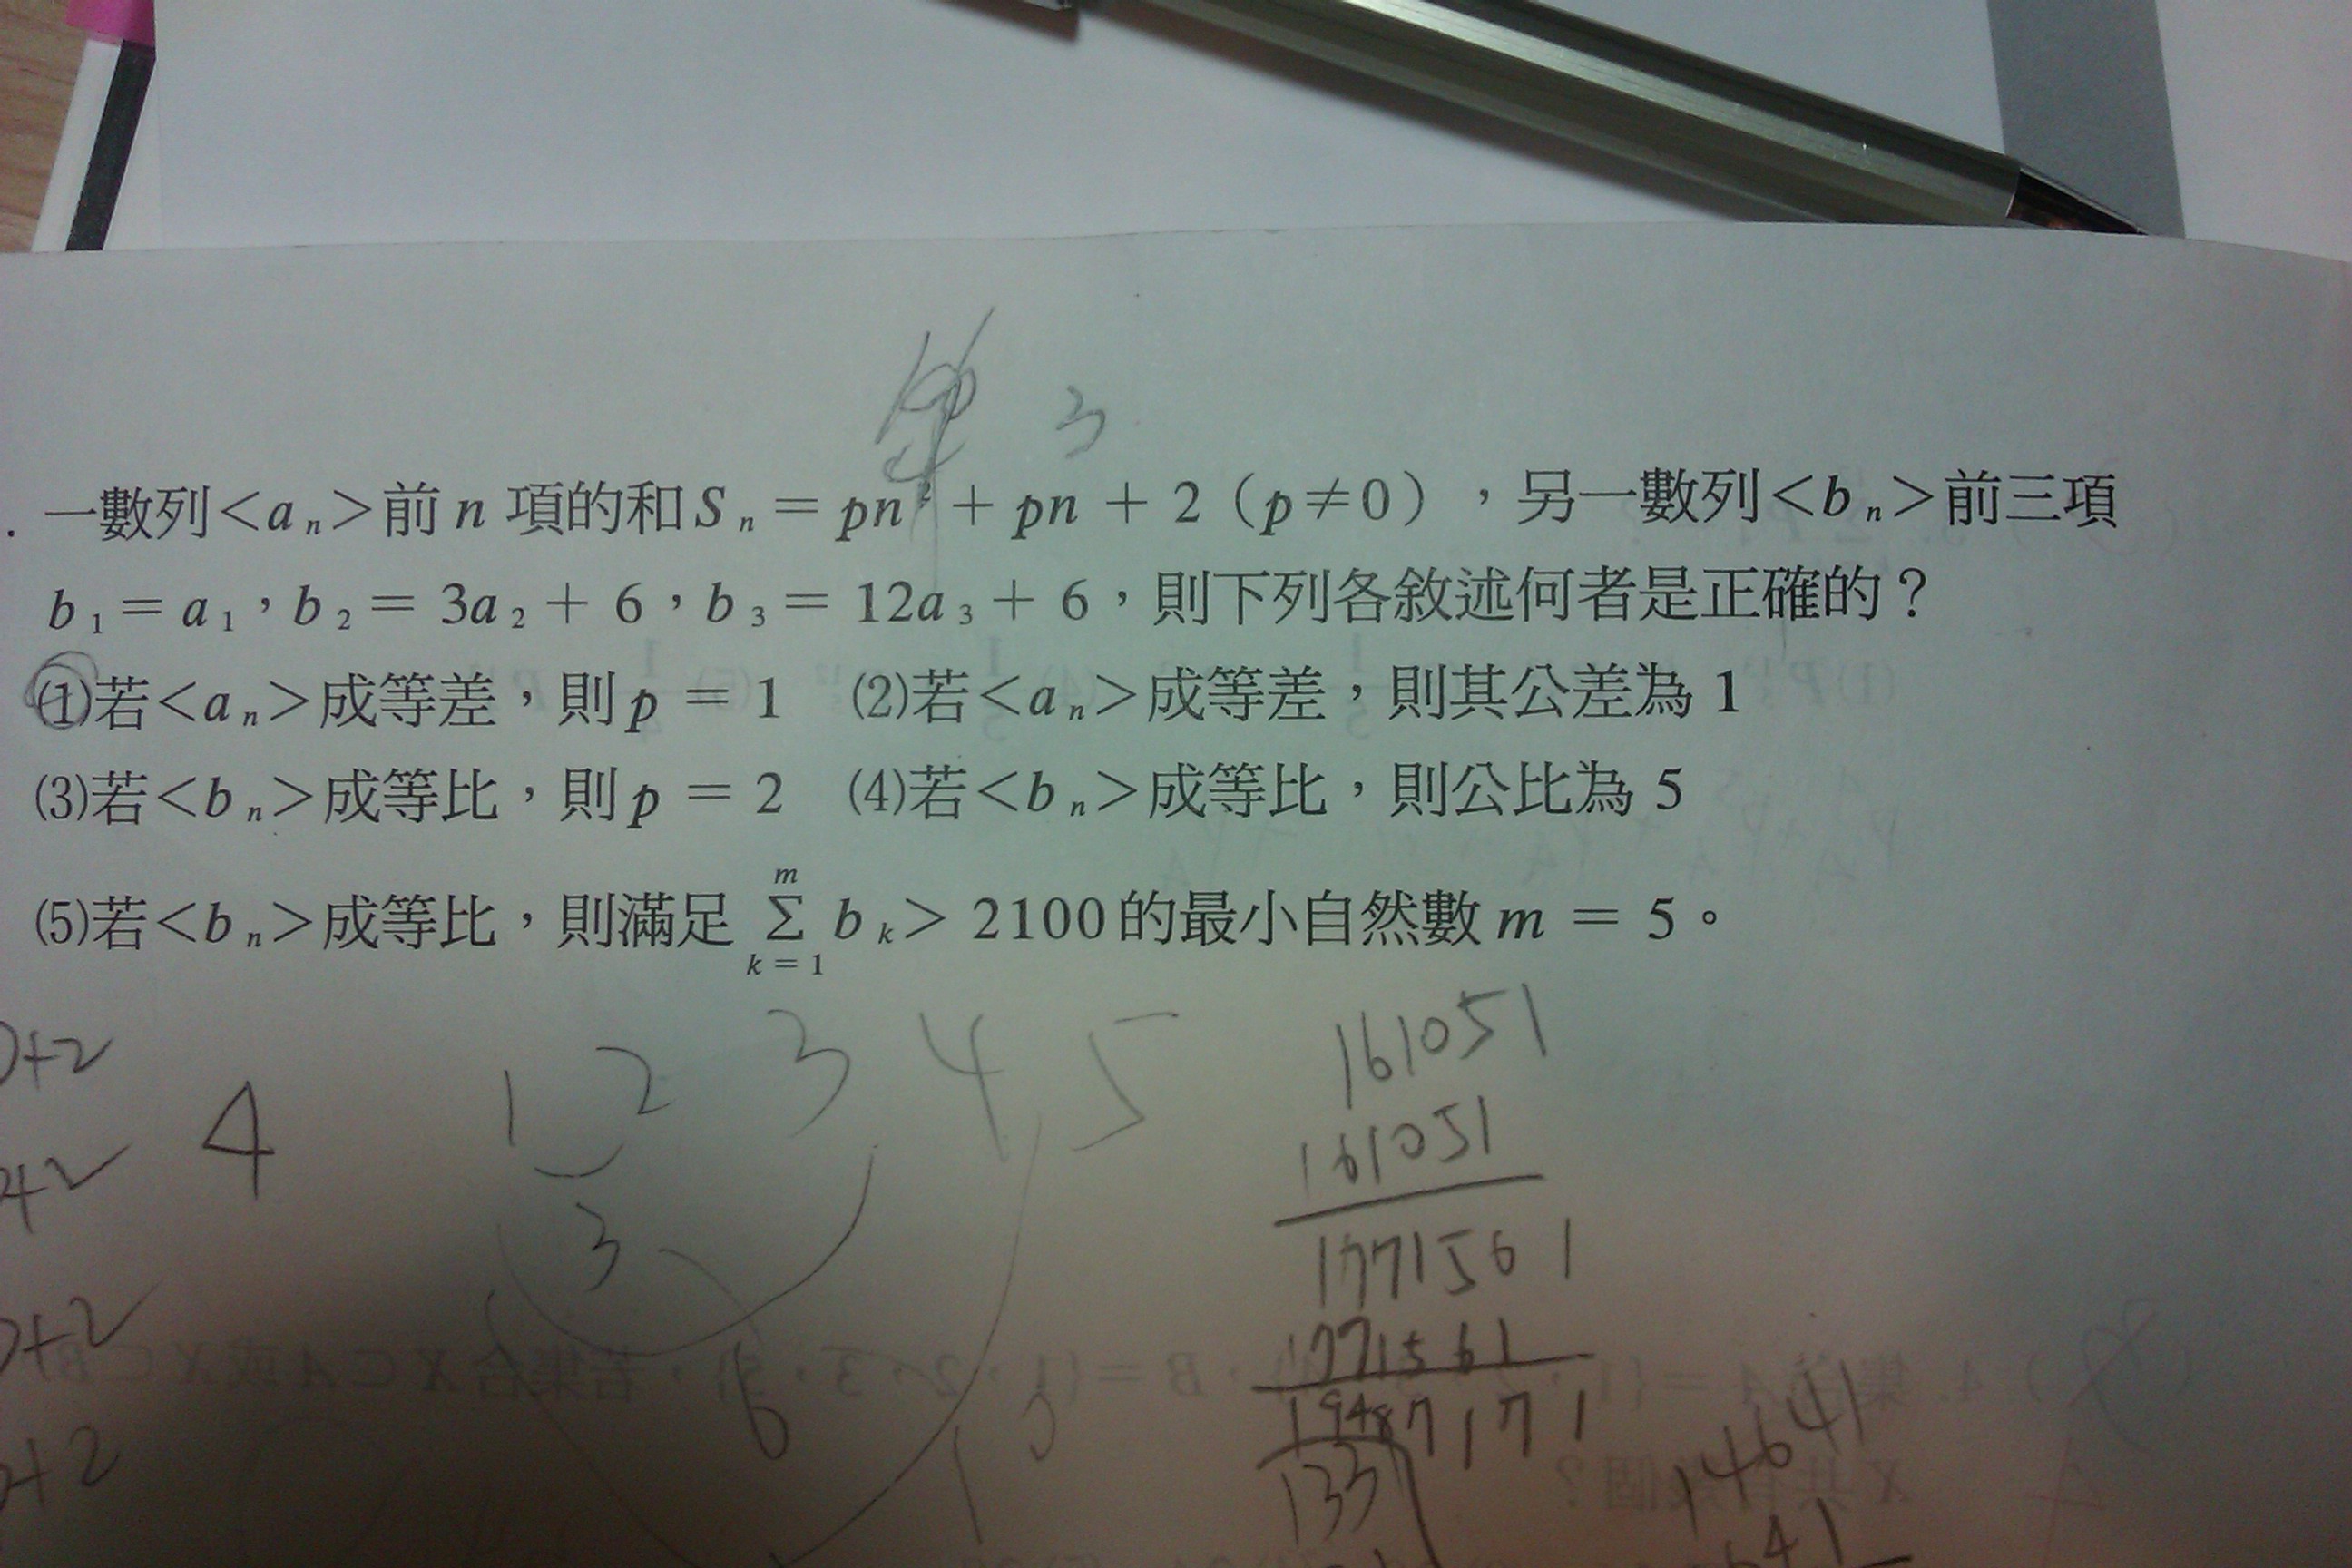 3
一數列<a n>前 n 項的和 S n = pn² + pn + 2（p≠0），另一數列<b n>前三項
b 1 = a 1，b 2 = 3a 2 + 6，b 3 = 12a 3 + 6，則下列各敘述何者是正確的？
⑴若<a n>成等差，則 p = 1 ⑵若<a n>成等差，則其公差為 1
⑶若<b n>成等比，則 p = 2 ⑷若<b n>成等比，則公比為 5
⑸若<b n>成等比，則滿足 m Σ k = 1 b k > 2100 的最小自然數 m = 5。
+2 4 1 2 3 4 5 161051
+2 161051
3 1771561
+2 1771561
6 19487171
+2 133 14641
641